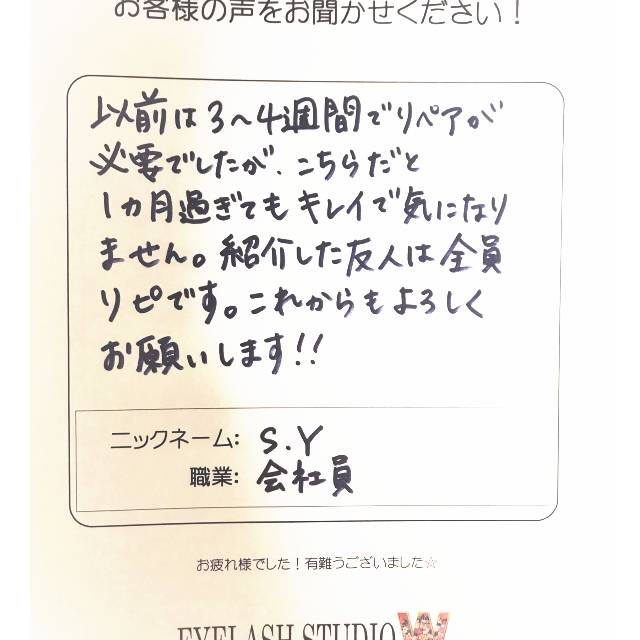 お客様の声をお聞かせください！
以前は3〜4週間でリペアが
必要でしたが、こちらだと
1カ月過ぎてもキレイで気になり
ません。紹介した友人は全員
リピです。これからもよろしく
お願いします!!
ニックネーム: S.Y
職業: 会社員
お疲れ様でした！有難うございました☆
EYELASH STUDIO W